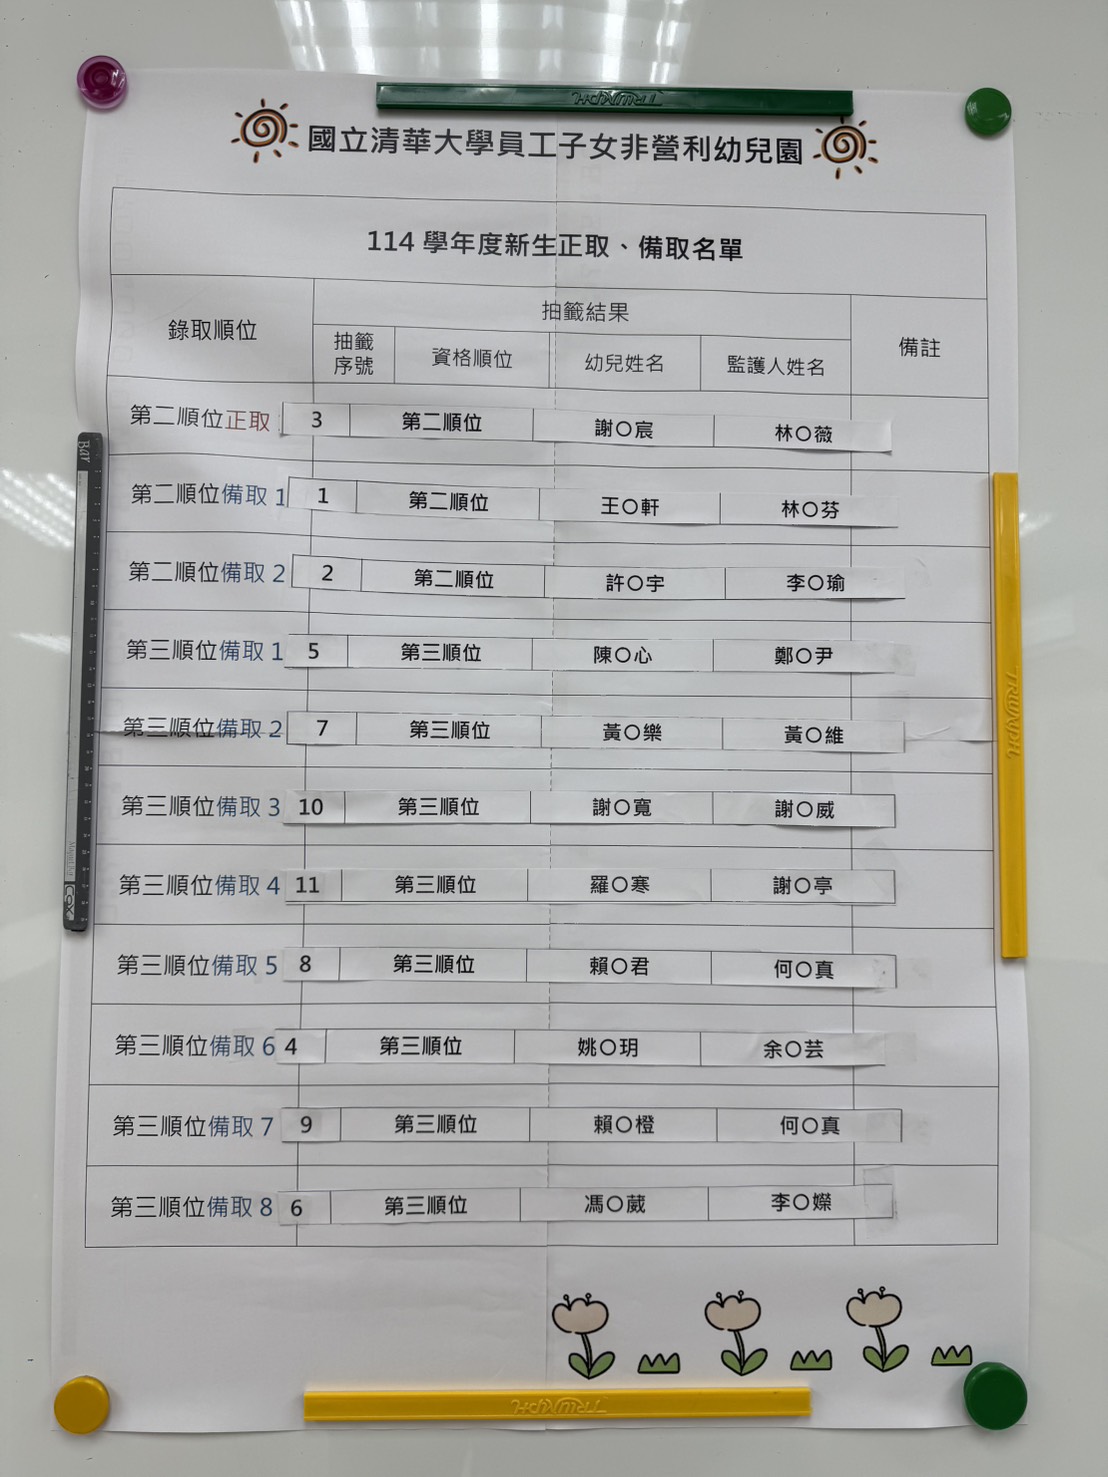 TRIUMPH
國立清華大學員工子女非營利幼兒園
114 學年度新生正取、備取名單
錄取順位 抽籤結果 備註
抽籤序號 資格順位 幼兒姓名 監護人姓名
第二順位正取 3 第二順位 謝○宸 林○薇
第二順位備取 1 1 第二順位 王○軒 林○芬
第二順位備取 2 2 第二順位 許○宇 李○瑜
第三順位備取 1 5 第三順位 陳○心 鄭○尹
第三順位備取 2 7 第三順位 黃○樂 黃○維
第三順位備取 3 10 第三順位 謝○寬 謝○威
第三順位備取 4 11 第三順位 羅○寒 謝○亭
第三順位備取 5 8 第三順位 賴○君 何○真
第三順位備取 6 4 第三順位 姚○玥 余○芸
第三順位備取 7 9 第三順位 賴○橙 何○真
第三順位備取 8 6 第三順位 馮○葳 李○嬫
TRIUMPH
TRIUMPH
COX